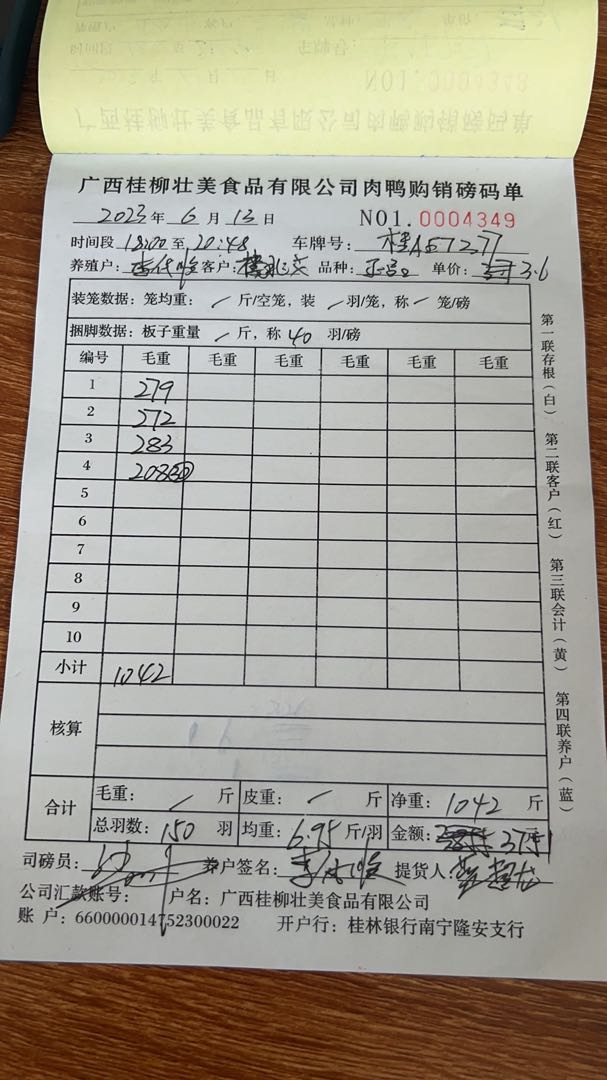 NO1.0004348
广西桂柳壮美食品有限公司肉鸭购销磅码单
广西桂柳壮美食品有限公司肉鸭购销磅码单
2023年6月13日 NO1.0004349
时间段18:00至20:48 车牌号：桂A57277
养殖户： 客户： 品种： 单价：3.6
装笼数据：笼均重：/斤/空笼，装/羽/笼，称/笼/磅
捆脚数据：板子重量/斤，称40羽/磅
编号 毛重 毛重 毛重 毛重 毛重 毛重
1 279
2 272
3 283
4 208(30)
5
6
7
8
9
10
小计 1042
核算
合计
毛重：/斤 皮重：/斤 净重：1042斤
总羽数：150羽 均重：6.95斤/羽 金额：
司磅员： 养户签名： 提货人：
公司汇款账号： 户名：广西桂柳壮美食品有限公司
账 户：660000014752300022 开户行：桂林银行南宁隆安支行
第一联存根（白） 第二联客户（红） 第三联会计（黄） 第四联养户（蓝）